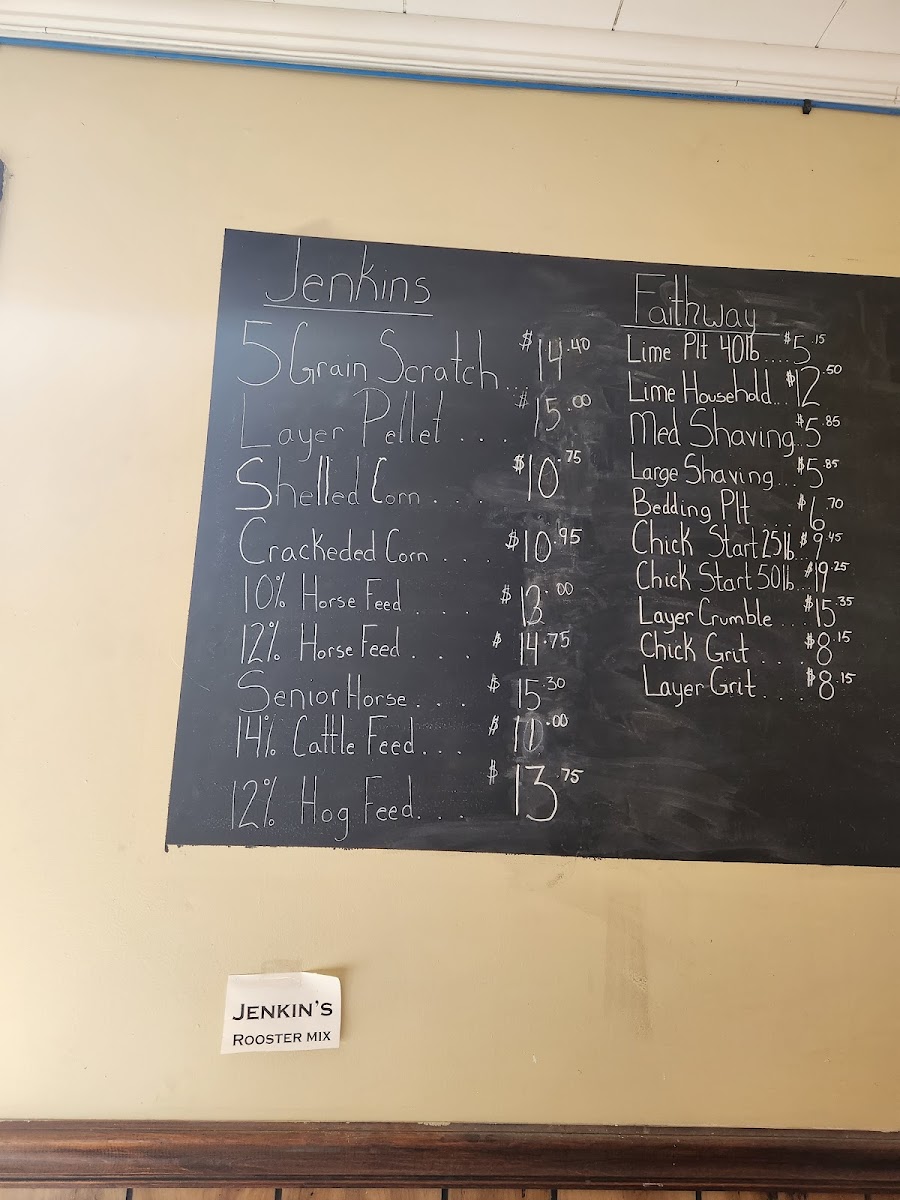 Jenkins
5 Grain Scratch... $14.40
Layer Pellet . . . . $15.00
Shelled Corn . . . $10.75
Crackeded Corn . . . . $10.95
10% Horse Feed . . . . $13.00
12% Horse Feed . . . $14.75
Senior Horse . . . $15.30
14% Cattle Feed . . . $11.00
12% Hog Feed. . . $13.75
Faithway
Lime Plt 40lb.... $5.15
Lime Household... $12.50
Med Shaving.. $5.85
Large Shaving.... $5.85
Bedding Plt . . . . $6.70
Chick Start 25lb.. $9.45
Chick Start 50lb... $19.25
Layer Crumble . . . $15.35
Chick Grit . . . . $8.15
Layer Grit . . . $8.15
JENKIN'S
ROOSTER MIX